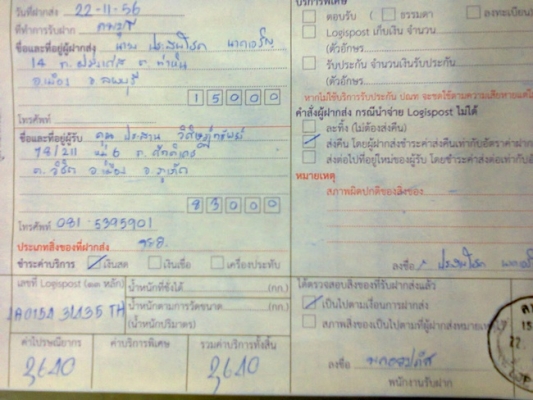 วันที่ฝากส่ง 22-11-56
ที่ทำการรับฝาก ลพบุรี
ชื่อและที่อยู่ผู้ฝากส่ง นาย ประสิทธิ์โชค
14 ถ. ต. ท่าหิน
อ.เมือง จ.ลพบุรี
15000
โทรศัพท์
ชื่อและที่อยู่ผู้รับ คุณ ประสาน
78/211 หมู่ 6 ถ. ศักดิเดช
ต. วิชิต อ.เมือง จ.ภูเก็ต
83000
โทรศัพท์ 081-5395901
ประเภทสิ่งของที่ฝากส่ง
ชำระค่าบริการ เงินสด เงินเชื่อ เครื่องประทับ
เลขที่ Logispost (๑๓ หลัก)
TH
น้ำหนักที่ชั่งได้ (กก.)
น้ำหนักตามการวัดขนาด (กก.)
(น้ำหนักปริมาตร)
ค่าไปรษณียากร ค่าบริการพิเศษ รวมค่าบริการทั้งสิ้น
บริการพิเศษ
ตอบรับ ( ธรรมดา ลงทะเบียน
Logispost เก็บเงิน จำนวน
(ตัวอักษร
รับประกัน จำนวนเงินรับประกัน
(ตัวอักษร
หากไม่ใช้บริการรับประกัน ปณท จะชดใช้ตามความเสียหายแต่ไ
คำสั่งผู้ฝากส่ง กรณีนำจ่าย Logispost ไม่ได้
ละทิ้ง (ไม่ต้องส่งคืน)
ส่งคืน โดยผู้ฝากส่งชำระค่าส่งคืนเท่ากับอัตราค่าฝาก
ส่งต่อไปที่อยู่ใหม่ของผู้รับ โดยชำระค่าส่งต่อเท่ากับอั
หมายเหตุ
สภาพผิดปกติของสิ่งของ
ลงชื่อ
ได้ตรวจสอบสิ่งของที่รับฝากส่งแล้ว
เป็นไปตามเงื่อนการฝากส่ง
สภาพสิ่งของเป็นไปตามที่ผู้ฝากส่งหมายเหตุไว้
ลงชื่อ
พนักงานรับฝาก